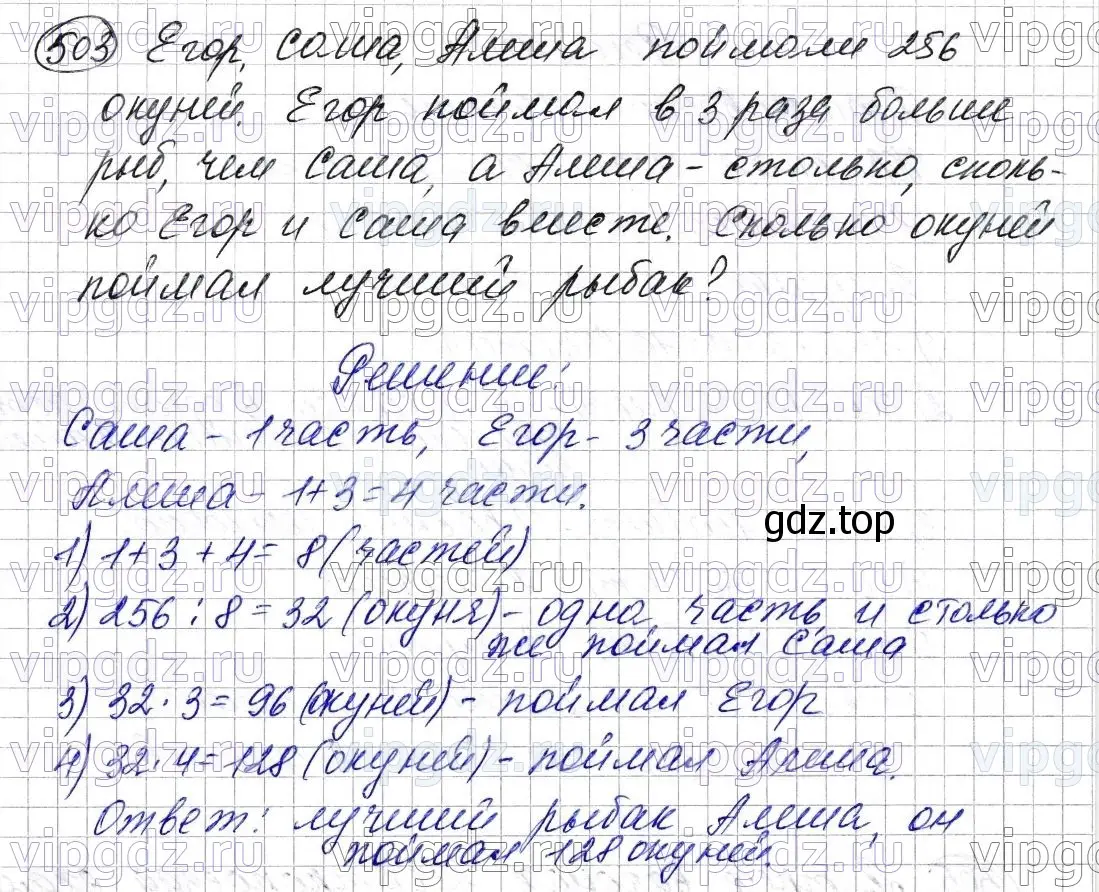 503 Егор, Саша, Алеша поймали 256
окуней. Егор поймал в 3 раза больше
рыб, чем Саша, а Алеша - столько, сколь-
ко Егор и Саша вместе. Сколько окуней
поймал лучший рыбак?
Решение:
Саша - 1 часть, Егор - 3 части,
Алеша - 1+3=4 части.
gdz.top
1) 1+3+4= 8 (частей)
2) 256 : 8 = 32 (окуня) - одна часть и столько
же поймал Саша
3) 32 · 3 = 96 (окуней) - поймал Егор
4) 32 · 4 = 128 (окуней) - поймал Алеша.
Ответ: лучший рыбак Алеша, он
поймал 128 окуней.
vipgdz.ru